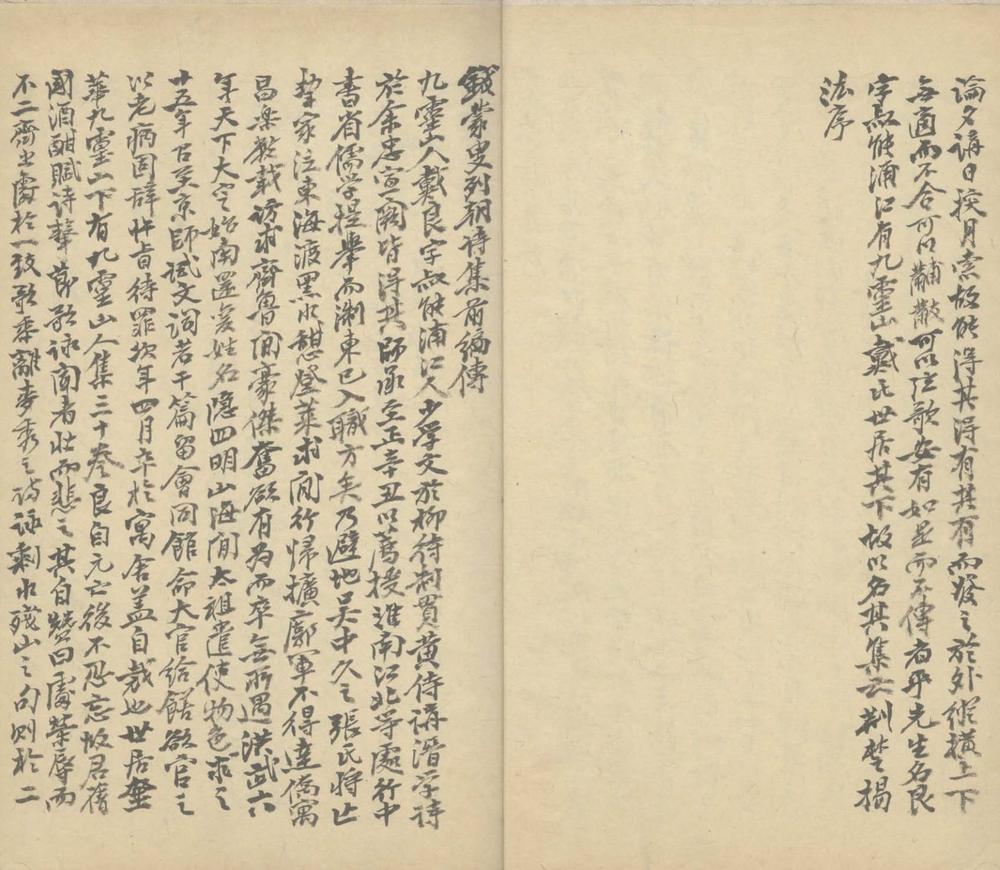 論夕講日挨月索故能得其得有其有而發之於外縱橫上下
無適而不合可以黼黻可以弦歌安有如是而不傳者乎先生名良
字叔能浦江有九靈山戴氏世居其下故以名其集云荆楚揚
法序
錢蒙叟列朝詩集前編傳
九靈山人戴良字叔能浦江人少學文於柳待制貫黃侍講溍學詩
於余忠宣闕皆得其師承至正辛丑以薦授淮南江北等處行中
書省儒學提舉而浙東已入職方矣乃避地吳中久之張氏將亡
挈家泛東海渡黑水憇登萊求間行歸擴廓軍不得達僑寓
昌樂數載訪求齊魯間豪傑奮欲有為而卒無所遇洪武六
年天下大定始南還变姓名隱四明山海間太祖遣使物色求之
十五年召至京師試文詞若干篇留會同館命大官給饍欲官之
以老病固辞忤旨待罪次年四月卒於寓舍盖自裁也世居金
華九靈山下有九靈山人集三十卷良自元亡後不忍忘故君舊
國酒酣賦詩擊節歌咏聞者壮而悲之其自賛曰處榮辱而
不二齊出處於一致歌黍離麥秀之詩咏剩水殘山之句則於二